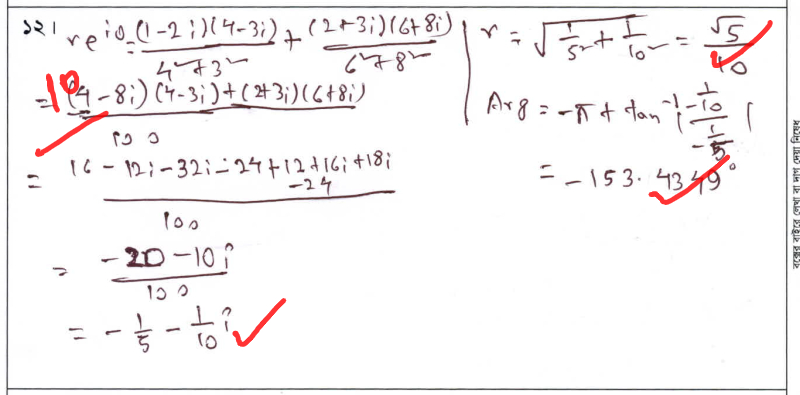 ১২। re^iθ = (1-2i)(4-3i)/4²+3² + (2+3i)(6+8i)/6²+8²
= (4-8i)(4-3i)+(2+3i)(6+8i)/100
10
= 16-12i-32i-24+12+16i+18i-24/100
= -20-10i/100
= -1/5 - 1/10 i
r = √(1/5² + 1/10²) = √5/10
Arg = -π + tan⁻¹ | -1/10 / -1/5 |
= -153.4349°
বক্সের বাইরে লেখা বা দাগ দেয়া নিষেধ